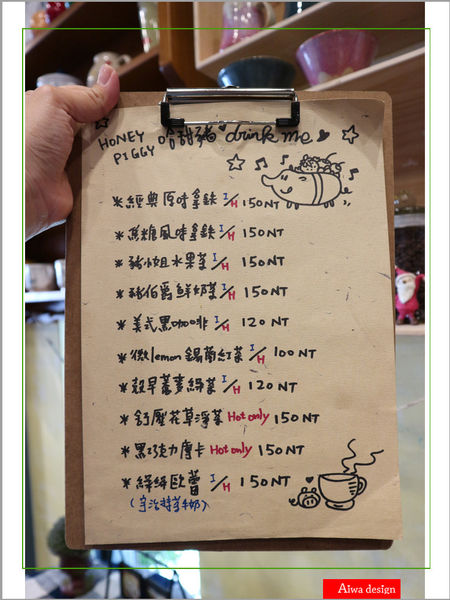 HONEY PIGGY 哈甜豬 drink me
*經典原味拿鐵 I/H 150NT
*焦糖風味拿鐵 I/H 150NT
*豬小姐水果茶 I/H 150NT
*豬伯爵鮮奶茶 I/H 150NT
*美式黑咖啡 I/H 120NT
*微lemon錫蘭紅茶 I/H 100NT
*超早蕎麥綠茶 I/H 120NT
*舒壓花草淨茶 Hot only 150NT
*黑巧克力摩卡 Hot only 150NT
*綠綠歐蕾 I/H 150NT
(宇治抹茶牛奶)
Aiwa design